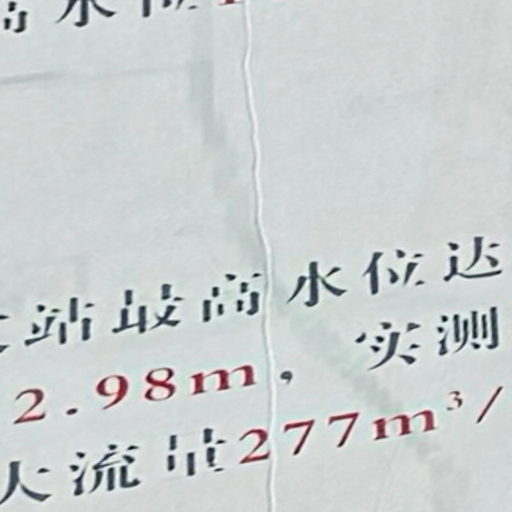 高水位
站最高水位达
2.98m，实测
大流量277m³/